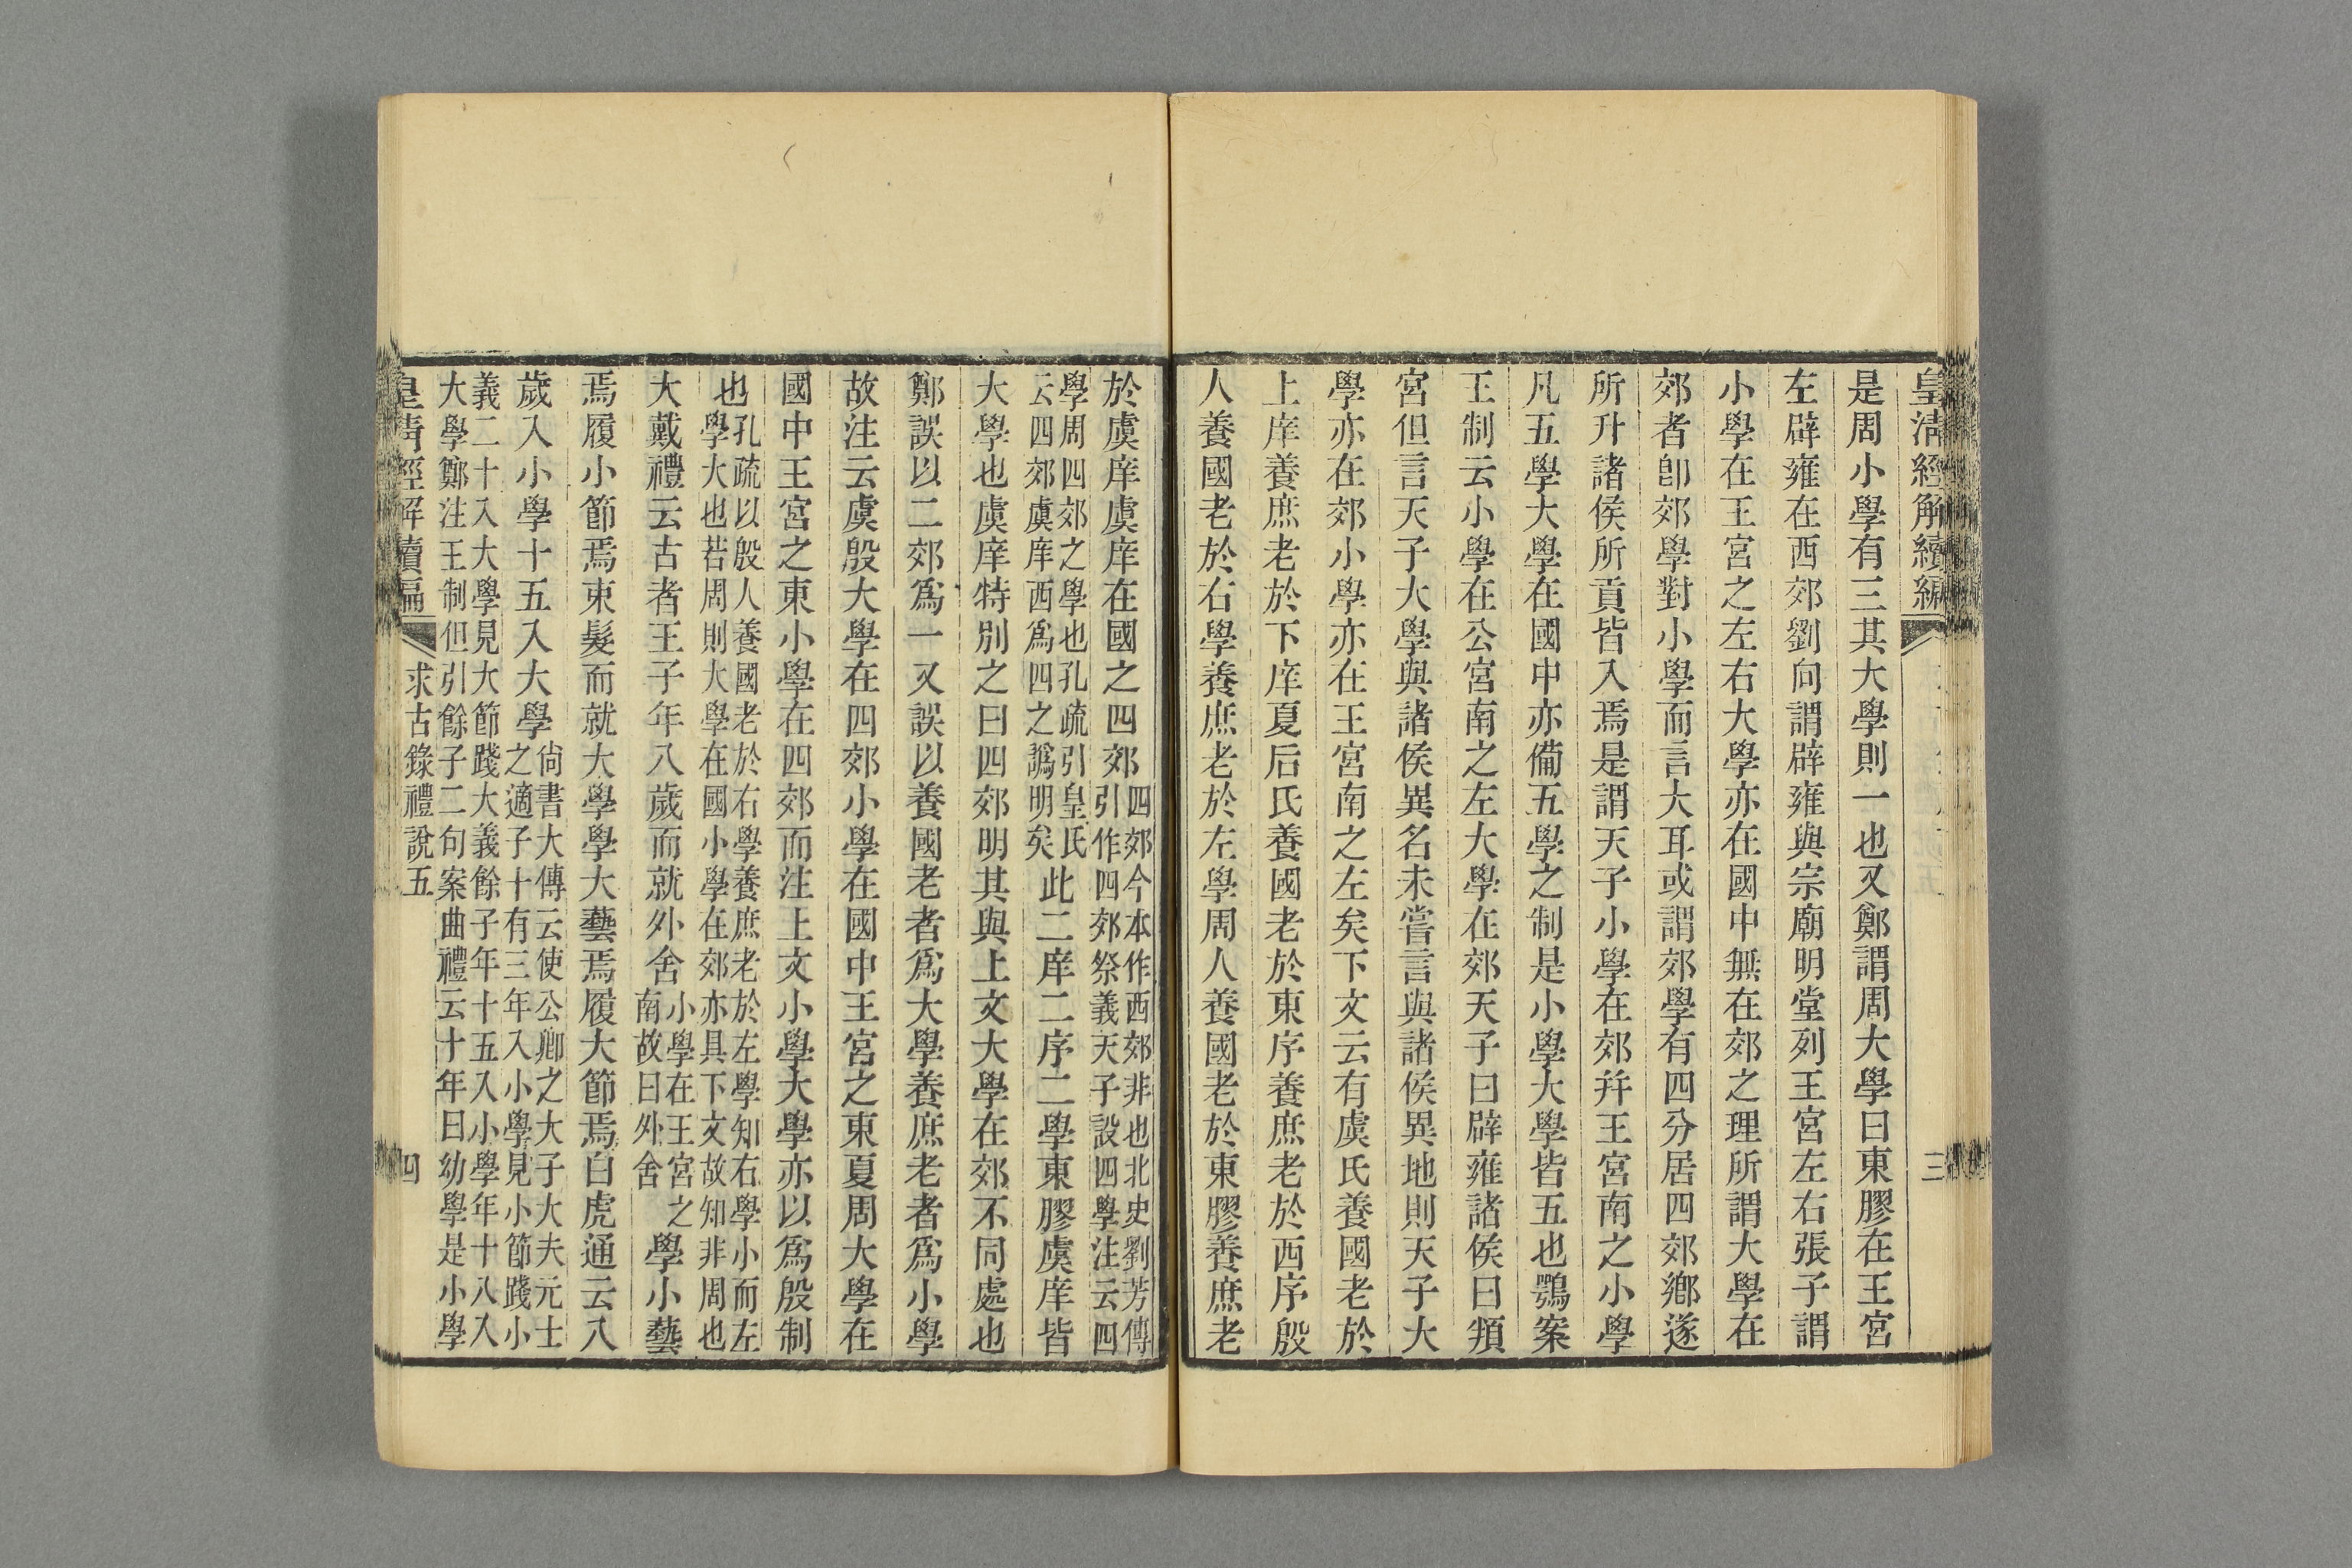 皇清經解續編
三
是周小學有三其大學則一也又鄭謂周大學曰東膠在王宮
左辟雍在西郊劉向謂辟雍與宗廟明堂列王宮左右張子謂
小學在王宮之左右大學亦在國中無在郊之理所謂大學在
郊者卽郊學對小學而言大耳或謂郊學有四分居四郊鄕遂
所升諸侯所貢皆入焉是謂天子小學在郊幷王宮南之小學
凡五學大學在國中亦備五學之制是小學大學皆五也鶚案
王制云小學在公宮南之左大學在郊天子曰辟雍諸侯曰頖
宮但言天子大學與諸侯異名未嘗言與諸侯異地則天子大
學亦在郊小學亦在王宮南之左矣下文云有虞氏養國老於
上庠養庶老於下庠夏后氏養國老於東序養庶老於西序殷
人養國老於右學養庶老於左學周人養國老於東膠養庶老
於虞庠虞庠在國之四郊
四郊今本作西郊非也北史劉芳傳
引作四郊祭義天子設四學注云四
學周四郊之學也孔疏引皇氏
云四郊虞庠西爲四之譌明矣
此二庠二序二學東膠虞庠皆
大學也虞庠特別之曰四郊明其與上文大學在郊不同處也
鄭誤以二郊爲一又誤以養國老者爲大學養庶老者爲小學
故注云虞殷大學在四郊小學在國中王宮之東夏周大學在
國中王宮之東小學在四郊而注上文小學大學亦以爲殷制
也
孔疏以殷人養國老於右學養庶老於左學知右學小而左
學大也若周則大學在國小學在郊亦具下文故知非周也
大戴禮云古者王子年八歲而就外舍
小學在王宮之
南故曰外舍
學小藝
焉履小節焉束髮而就大學學大藝焉履大節焉白虎通云八
歲入小學十五入大學
尙書大傳云使公卿之大子大夫元士
之適子十有三年入小學見小節踐小
義二十入大學見大節踐大義餘子年十五入小學年十八入
大學鄭注王制但引餘子二句案曲禮云十年曰幼學是小學
皇清經解續編
求古錄禮說五
四